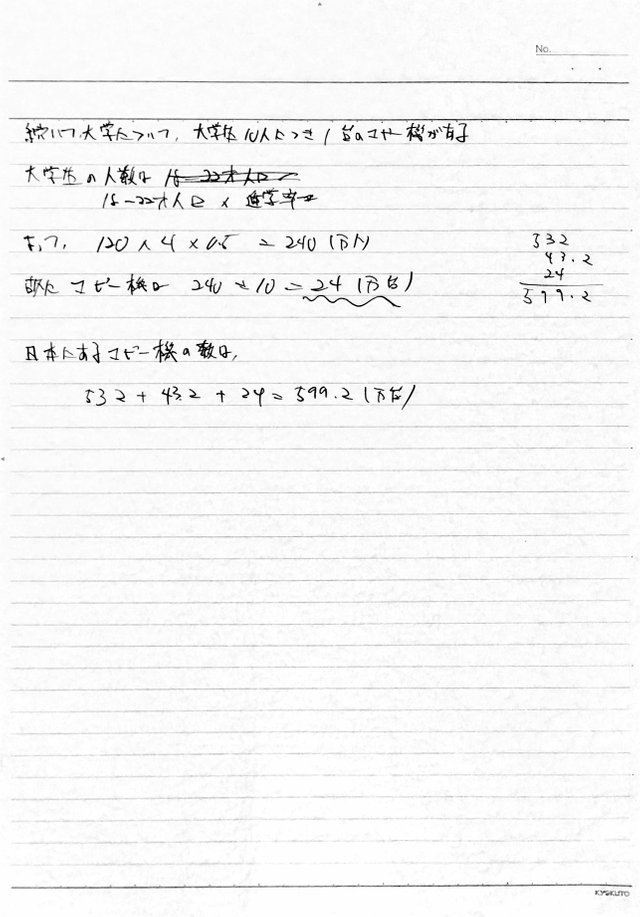 No.
続いて大学について、大学生10人につき1台のコピー機が有る
大学生の人数は 18-22才人口
18-22才人口 × 進学率
よって、120 × 4 × 0.5 = 240 (万人)
532
43.2
24
599.2
故に コピー機は 240 ÷ 10 = 24 (万台)
日本にあるコピー機の数は、
532 + 43.2 + 24 = 599.2 (万台)
KYOKUTO